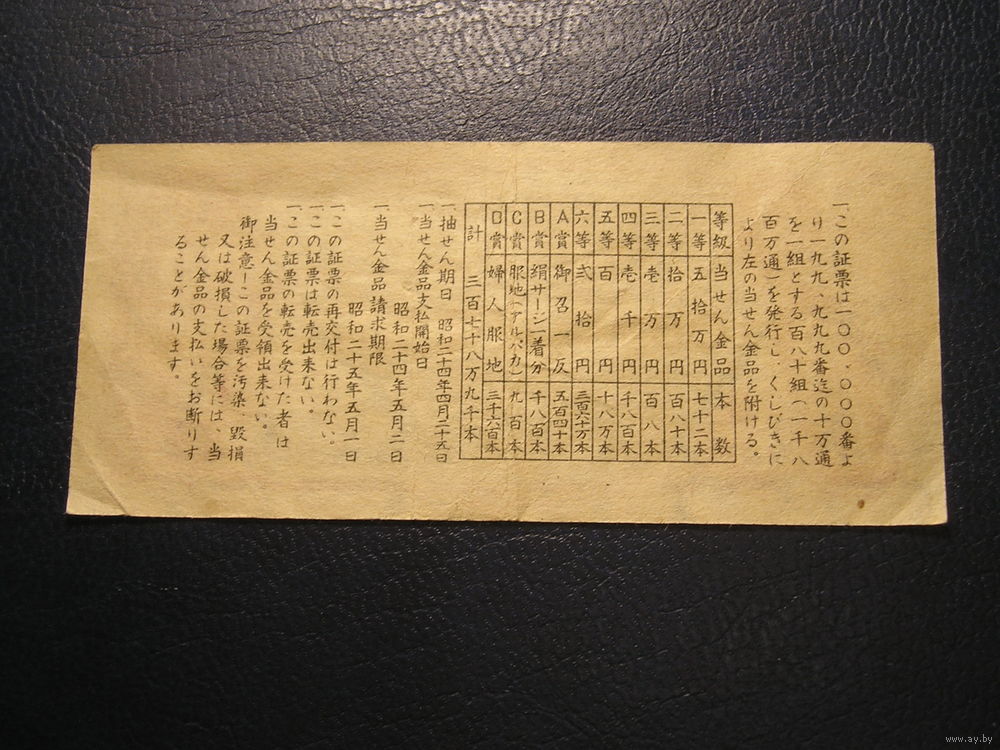 一、この証票は一〇〇、〇〇〇番よ
り一九九、九九九番迄の十万通
を一組とする百八十組(一千八
百万通)を発行し、くじびきに
より左の当せん金品を附ける。
等級 当せん金品 本数
一等 五拾万円 七十二本
二等 拾万円 百八十本
三等 壱万円 百八本
四等 壱千円 千八百本
五等 百円 十八万本
六等 弐拾円 三百六十万本
A賞 御召一反 五百四十本
B賞 絹サージ一着分 千八百本
C賞 服地(アルパカ) 九百本
D賞 婦人服地 三千六百本
計 三百七十八万九千本
一、抽せん期日 昭和二十四年四月二十五日
一、当せん金品支払開始日
昭和二十四年五月二日
一、当せん金品請求期限
昭和二十五年五月一日
一、この証票の再交付は行わない。
一、この証票は転売出来ない。
一、この証票の転売を受けた者は
当せん金品を受領出来ない。
御注意ーこの証票を汚染、毀損
又は破損した場合等には、当
せん金品の支払いをお断りす
ることがあります。
www.ay.by